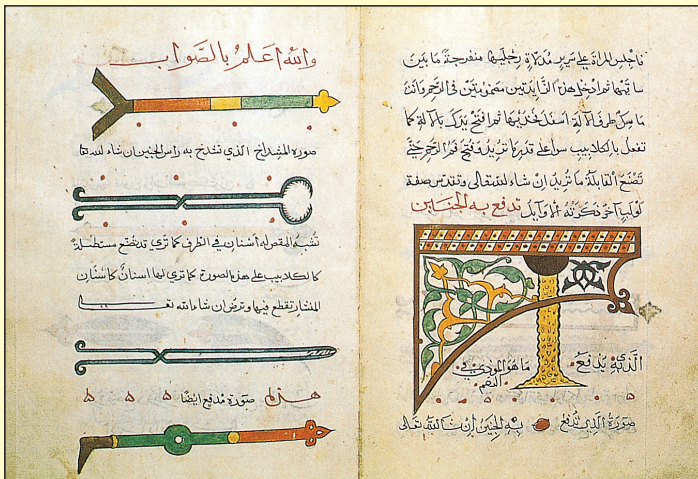 فاجلس المراة على سرير مدلاة رجليها منفرجة ما بين
ساقيها ثم ادخل هذا الزايدتين مضمومتين في الرحم وانت
ماسك طرف الالة اسفل فخذيها ثم افتح يدك بالالة كما
تفعل بالكلاليب سوا على قدر ما تريد فتح فم الرحم حتى
تصنع القابلة ما تريد ان شاء الله تعالى وتقدس صفة
لولب اخر ذكرته الاوايل تدفع به الجنين
الذي يدفع ما هو الموذي في
الفم
صورة الذي تدفع به الجنين ان شا الله تعالى
والله اعلم بالصواب
صورة المشداخ الذي تشدخ به راس الجنين ان شاء الله تعا
تشبه له اسنان في الطرف كما ترى قد تصنع مستطيلة
كالكلاليب على هذه الصورة كما ترى لها اسنان كاسنان
المنشار تقطع فيها وترض ان شاء الله تعا
صورة مدفع ايضا ٥ ٥ ٥